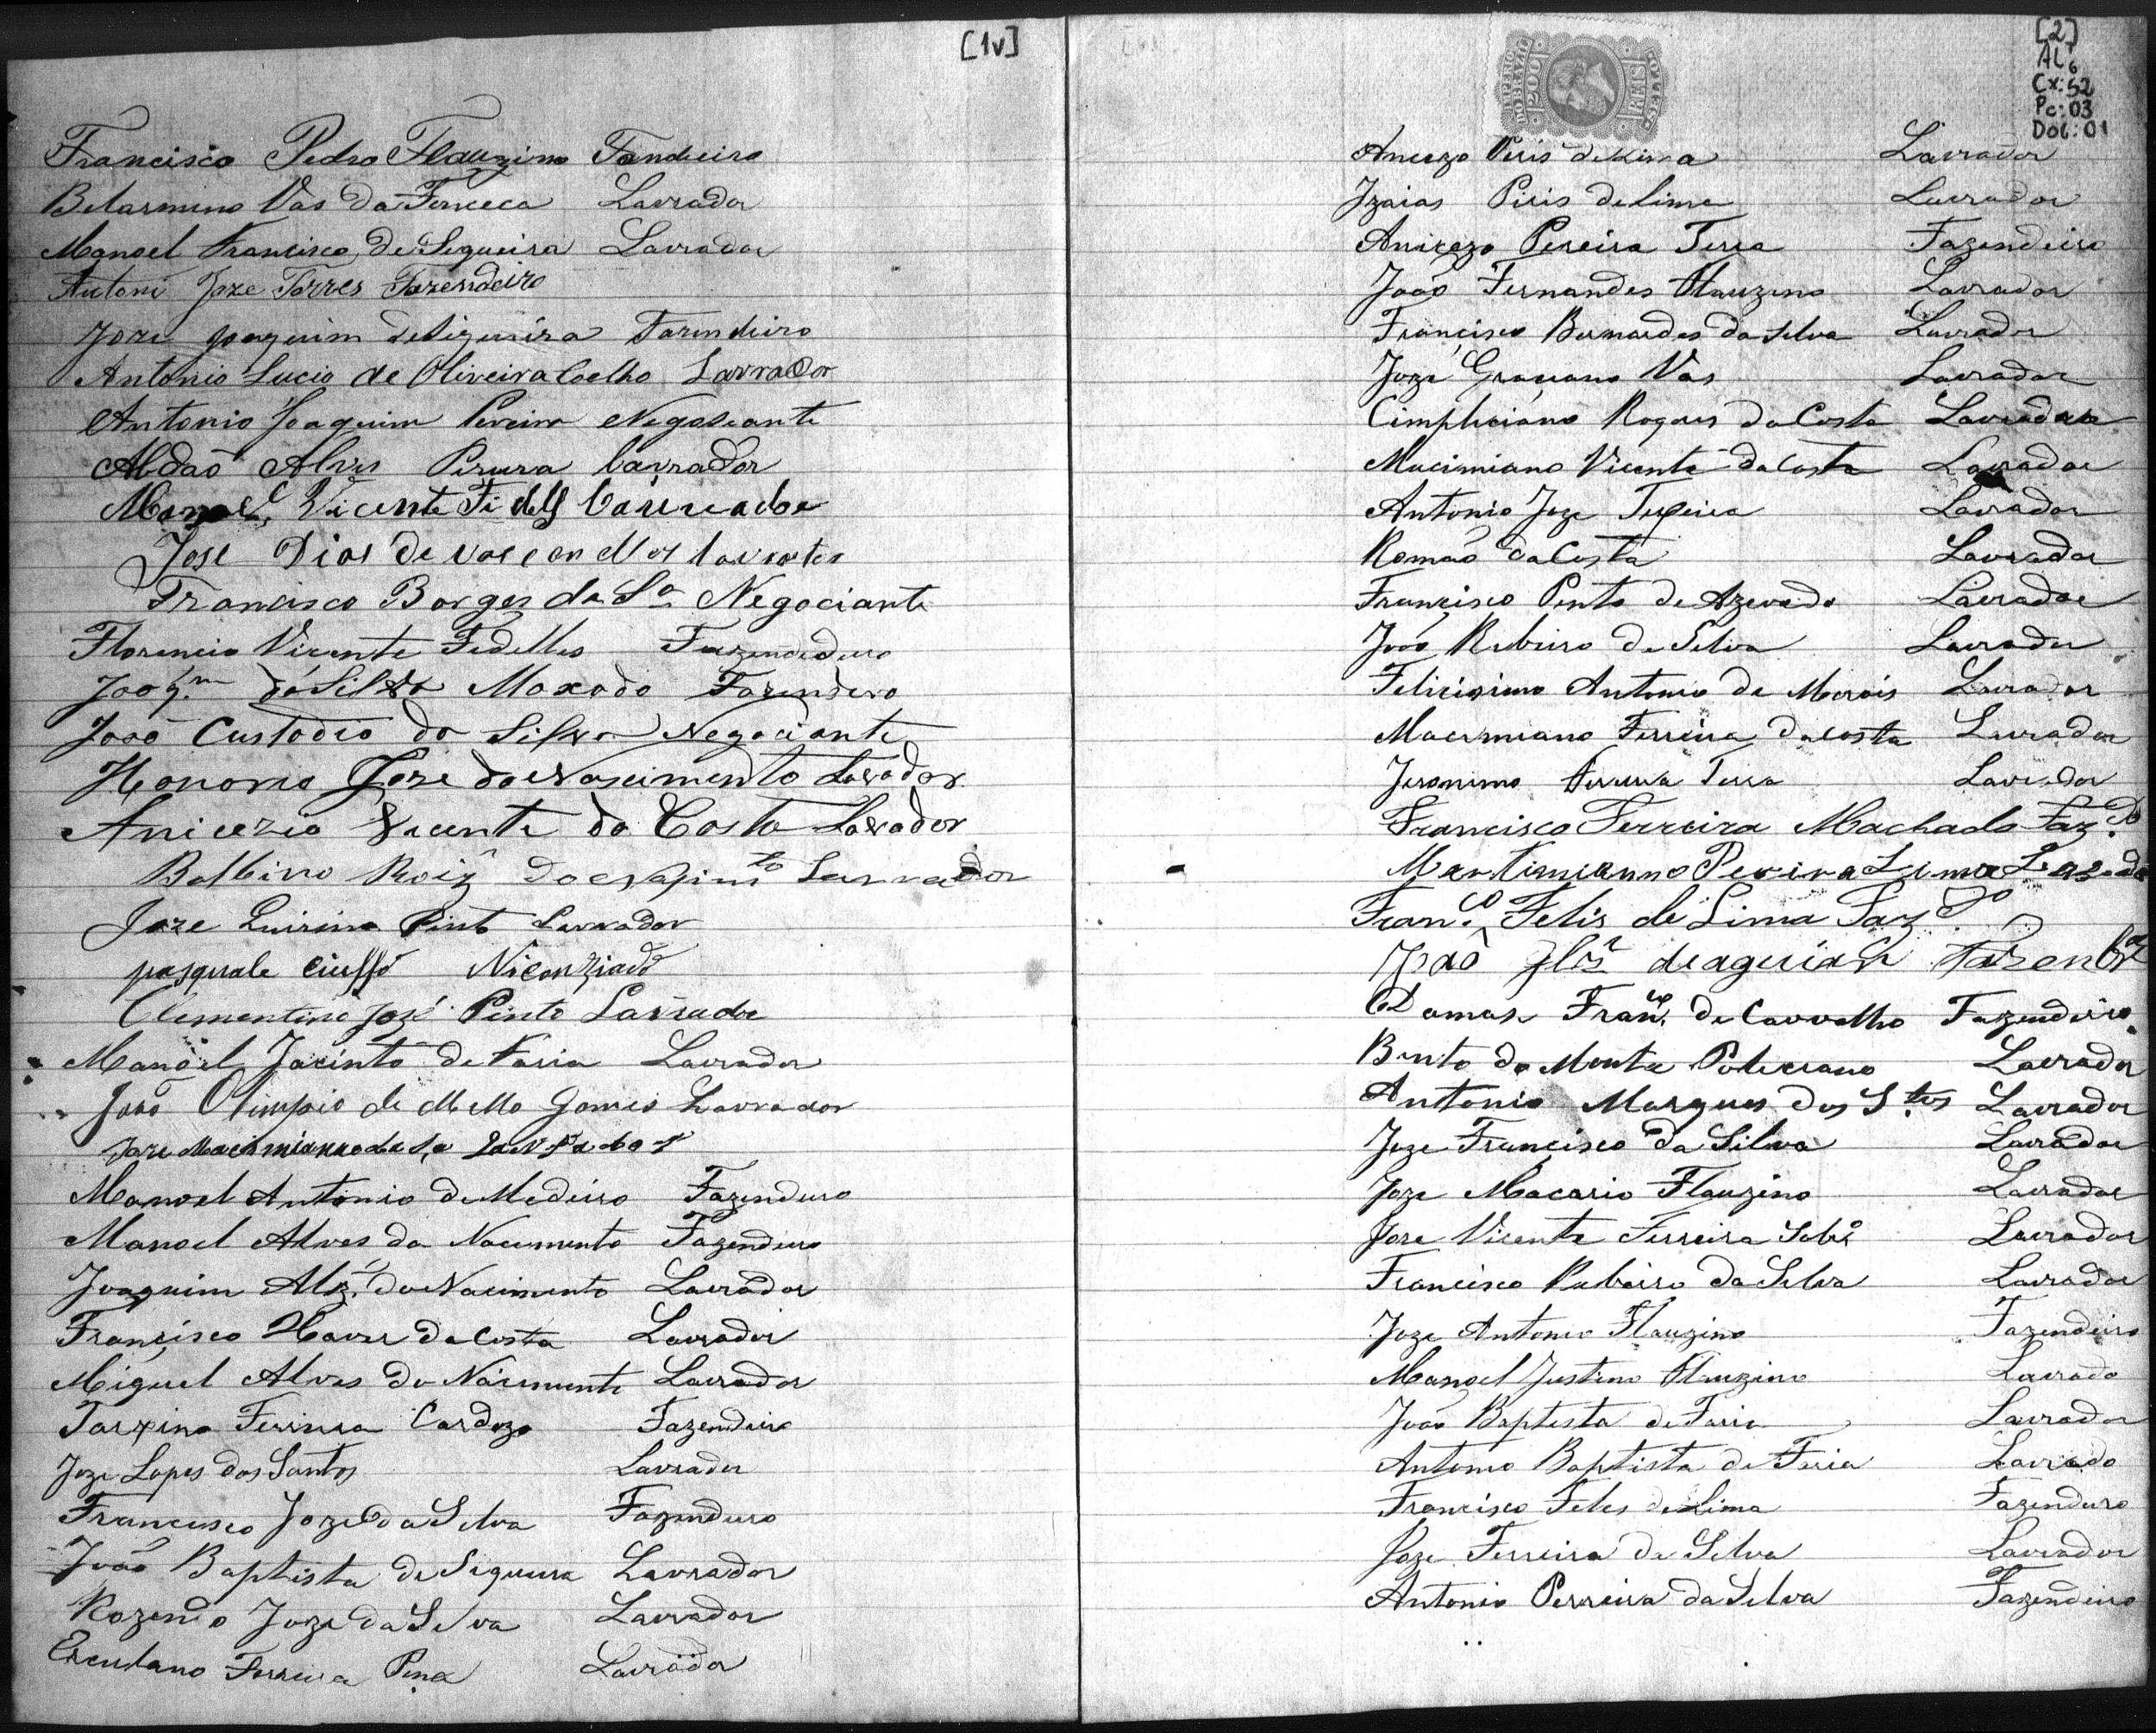 [1v]
Francisco Pedro Flauzino Fandeiro
Belarmino Vas da Fonceca Lavrador
Manoel Francisco de Sequeira Lavrador
Antoni Joze Torres Fazendeiro
Joze Joaquim deSigueira Fazendeiro
Antonio Lucio de Oliveira Coelho Lavrador
Antonio Joaquim Pereira Negoseante
Abdaõ Alves Pereira lavrador
Manoel Vicente Fidells Lavrador
José Dias de vasconcellos lavrador
Francisco Borges da Sa Negociante
Florencio Vicente Fidelles Fazendeduro
Joaqm da Silva Maxado Fazendero
João Custodio da Silva Negociante
Honorio Joze do Nascimento Lavrador
Anicezio Vicente da Costa Lavrador
Balbino Roiz do Lavrador
Joze Quirino Pinto Lavrador
pasquale ciuffo Niconziado
Clementino José Pinto Lavrador
Manoel Jacinto de Faria Lavrador
João Olimpio de Mello Gomes Lavrador
Joze Macimianno da Sa Lavrador
Manoel Antonio de Medeiro Fazendeiro
Manoel Alves do Nacimento Fazendeiro
Joaquim Alz. do Nacimento Lavrador
Francisco Xavier da Costa Lavrador
Miguel Alves do Nacimento Lavrador
Tarxino Ferreira Cardozo Fazendeiro
Joze Lopes dos Santos Lavrador
Francisco Joze da Silva Fazendeiro
João Baptista de Siqueira Lavrador
Rozendo Joze da Silva Lavrador
Erculano Ferreira Pena Lavrador
[2]
AL6
Cx:52
Pc:03
Doc:01
IMPERIO DO BRAZIL
200 REIS
SELLO
Anicezo Piris de Lima Lavrador
Izaias Piris de Lima Lavrador
Anicezo Pereira Terra Fazendeiro
João Fernandes Flauzino Lavrador
Francisco Bernardes da Silva Lavrador
José Graciano Vas Lavrador
Cimpliciano Roques da Costa Lavrador
Macimiano Vicente da Costa Lavrador
Antonio Joze Texeira Lavrador
Romão da Costa Lavrador
Francisco Pinto de Azevedo Lavrador
João Ribeiro da Silva Lavrador
Felicissimo Antonio de Morais Lavrador
Macimiano Ferreira da Costa Lavrador
Jeronimo Ferreira Terra Lavrador
Francisco Ferreira Machado Fazdo
Martimianno Pereira Lima
Franco Felis de Lima Fazdo
João deaguiar
Damas Franco de Carvalho Fazendeiro
Bento do Monte Policiano Lavrador
Antonio Marques dos Stos Lavrador
Joze Francisco da Silva Lavrador
Joze Macario Flauzino Lavrador
Joze Vicente Ferreira Sobro Lavrador
Francisco Rabeiro da Silva Lavrador
Joze Antonio Flauzino Fazendeiro
Manoel Justino Flauzino Lavrado
João Baptista de Faria Lavrador
Antonio Baptista de Faria Lavrado
Francisco Feles de Lima Fazendeiro
Joze Ferreira da Silva Lavrador
Antonio Perreira da Silva Fazendeiro